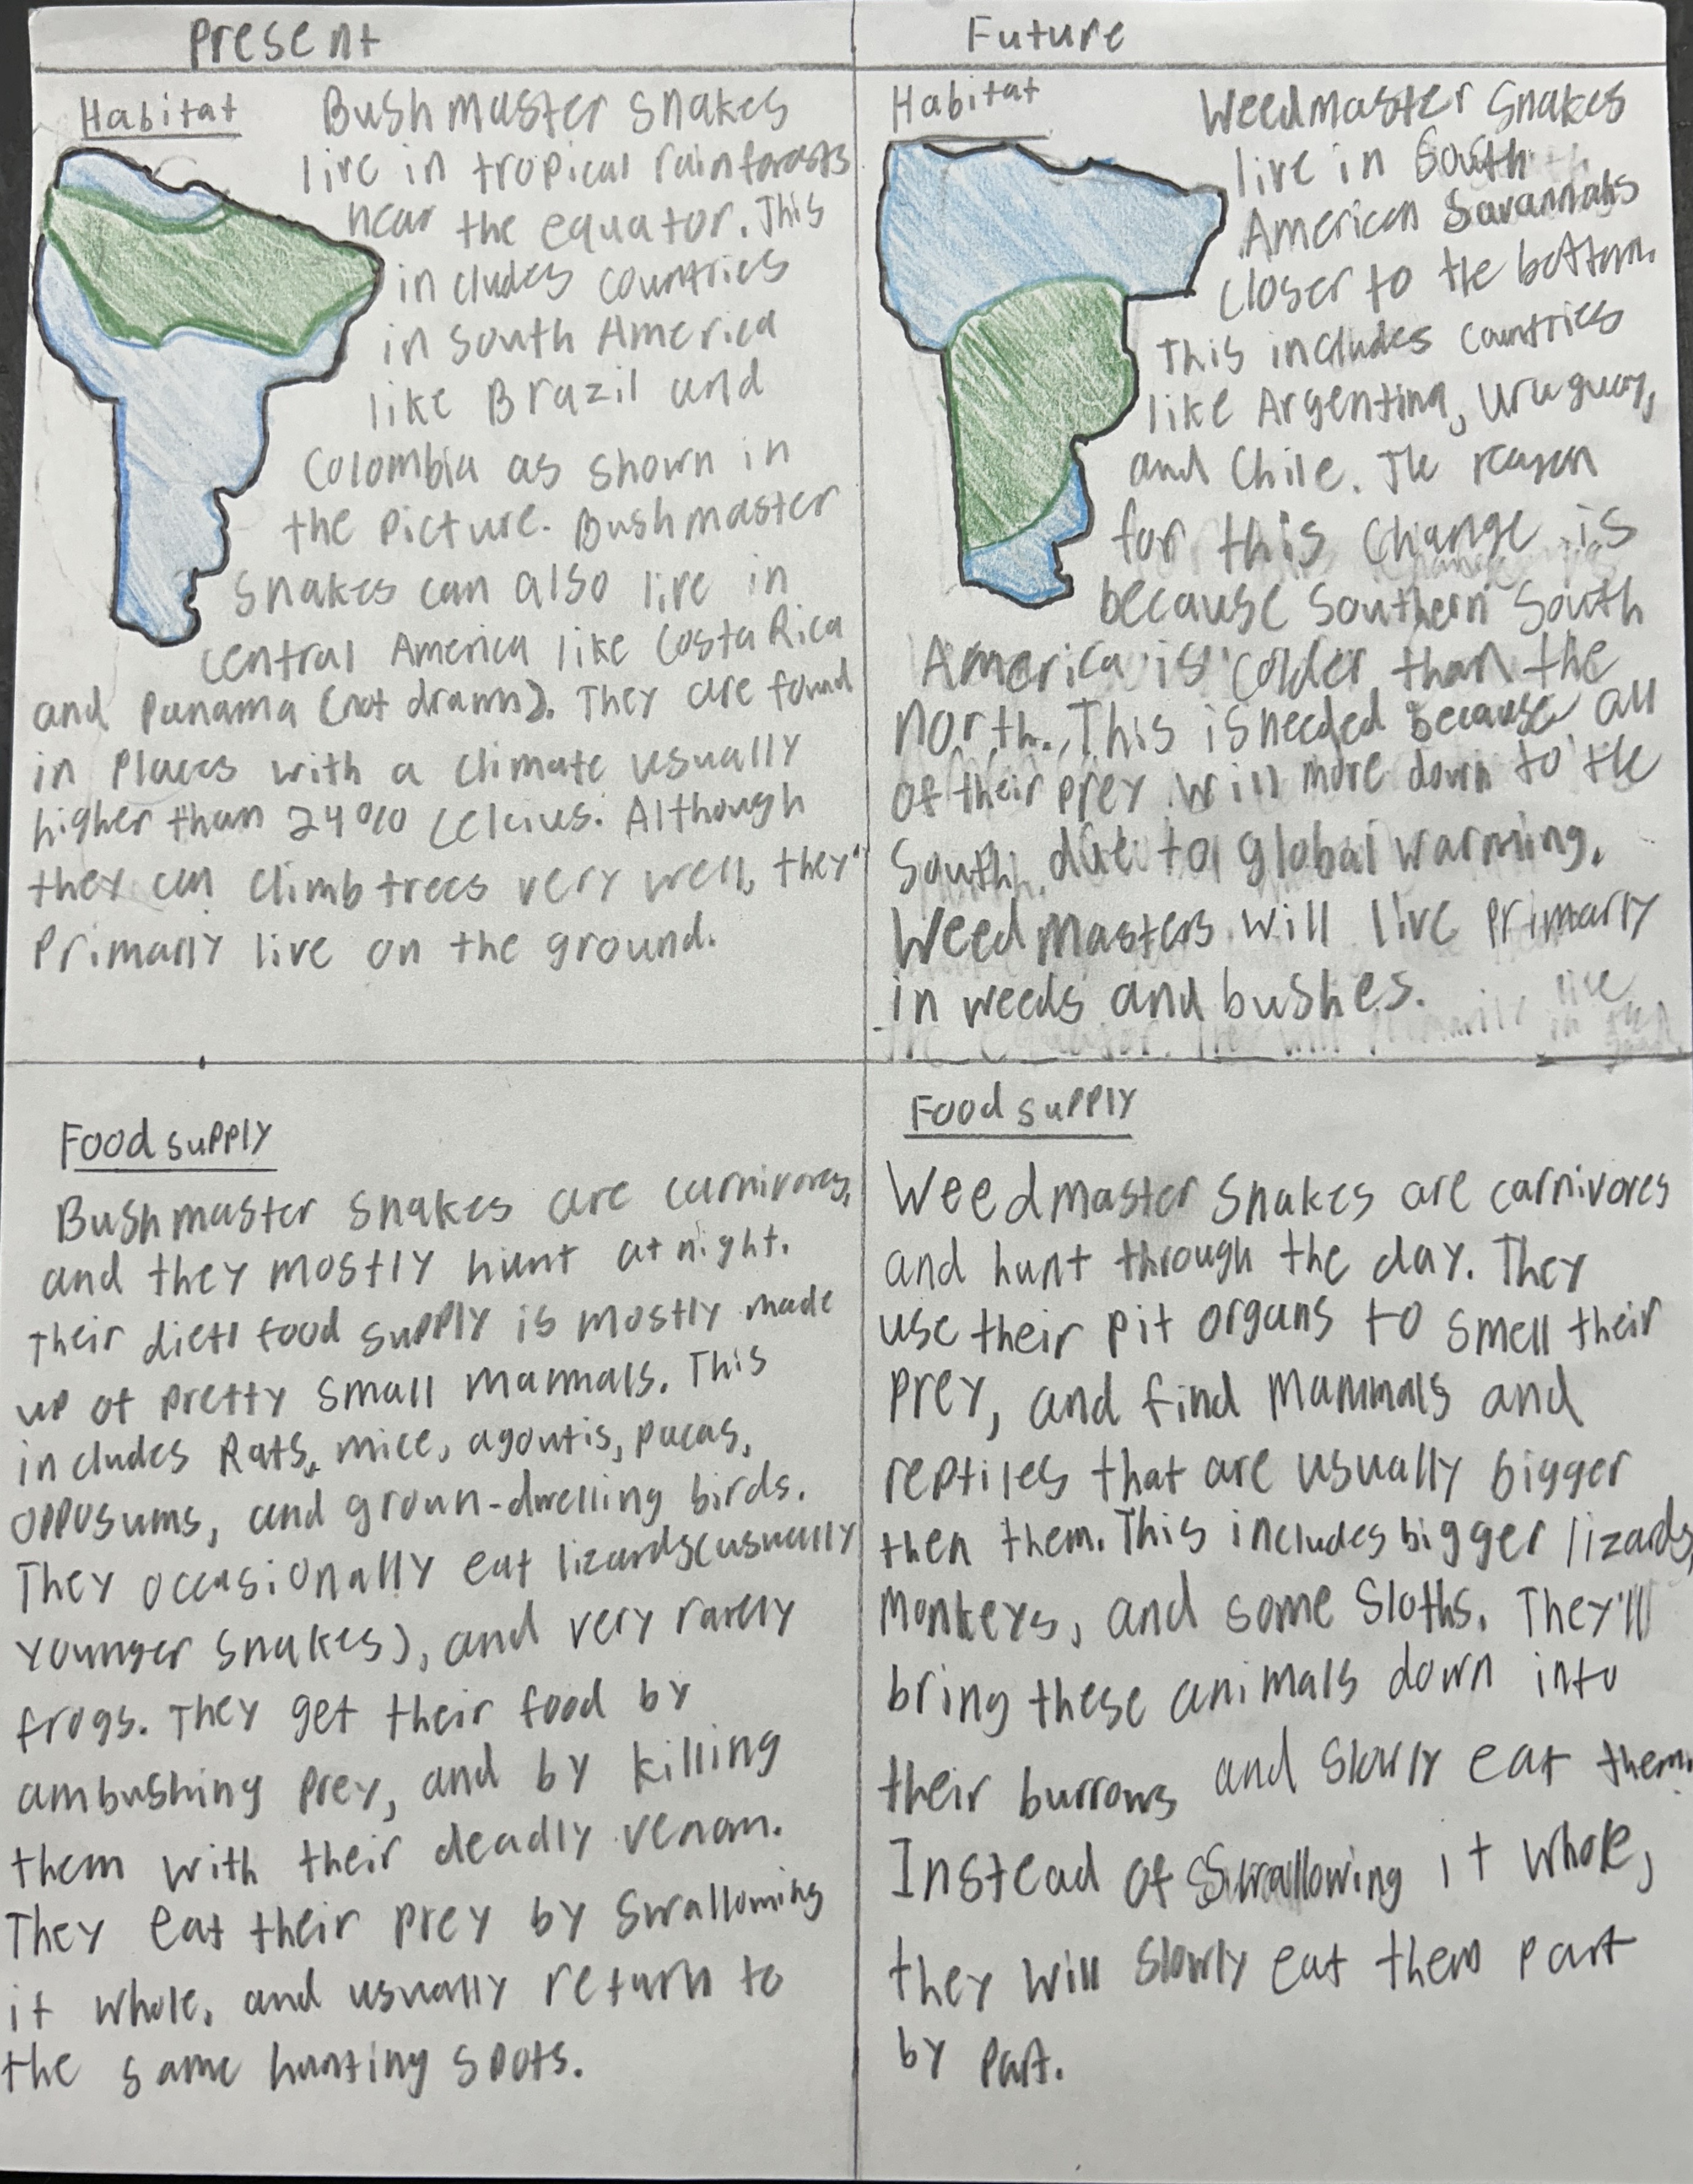 Present
Habitat
Bushmaster snakes
live in tropical rainforests
near the equator. This
includes countries
in South America
like Brazil and
Colombia as shown in
the picture. Bushmaster
snakes can also live in
central America like Costa Rica
and Panama (not drawn). They are found
in places with a climate usually
higher than 24% Celcius. Although
they can climb trees very well, they
Primarly live on the ground.
Food supply
Bushmaster snakes are carnivores,
and they mostly hunt at night.
Their diet/ food supply is mostly made
up of pretty small mammals. This
includes Rats, mice, agoutis, pacas,
opposums, and groun-dwelling birds.
They occasionally eat lizards(usually
younger snakes), and very rarely
frogs. They get their food by
ambushing prey, and by killing
them with their deadly venom.
They eat their prey by swallowing
it whole, and usually return to
the same hunting spots.
Future
Habitat
Weedmaster Snakes
live in South
American Savannahs
closer to the bottom.
This includes countries
like Argentina, Uruguay,
and Chile. The reason
for this change is
because Southern South
America is colder than the
north. This is needed because all
of their prey will move down to the
South due to global warming.
Weedmasters will live primarly
in weeds and bushes.
Food supply
Weedmaster snakes are carnivores
and hunt through the day. They
use their pit organs to smell their
prey, and find mammals and
reptiles that are usually bigger
then them. This includes bigger lizards,
monkeys, and some sloths. They'll
bring these animals down into
their burrows and slowly eat them.
Instead of swallowing it whole,
they will slowly eat them part
by part.